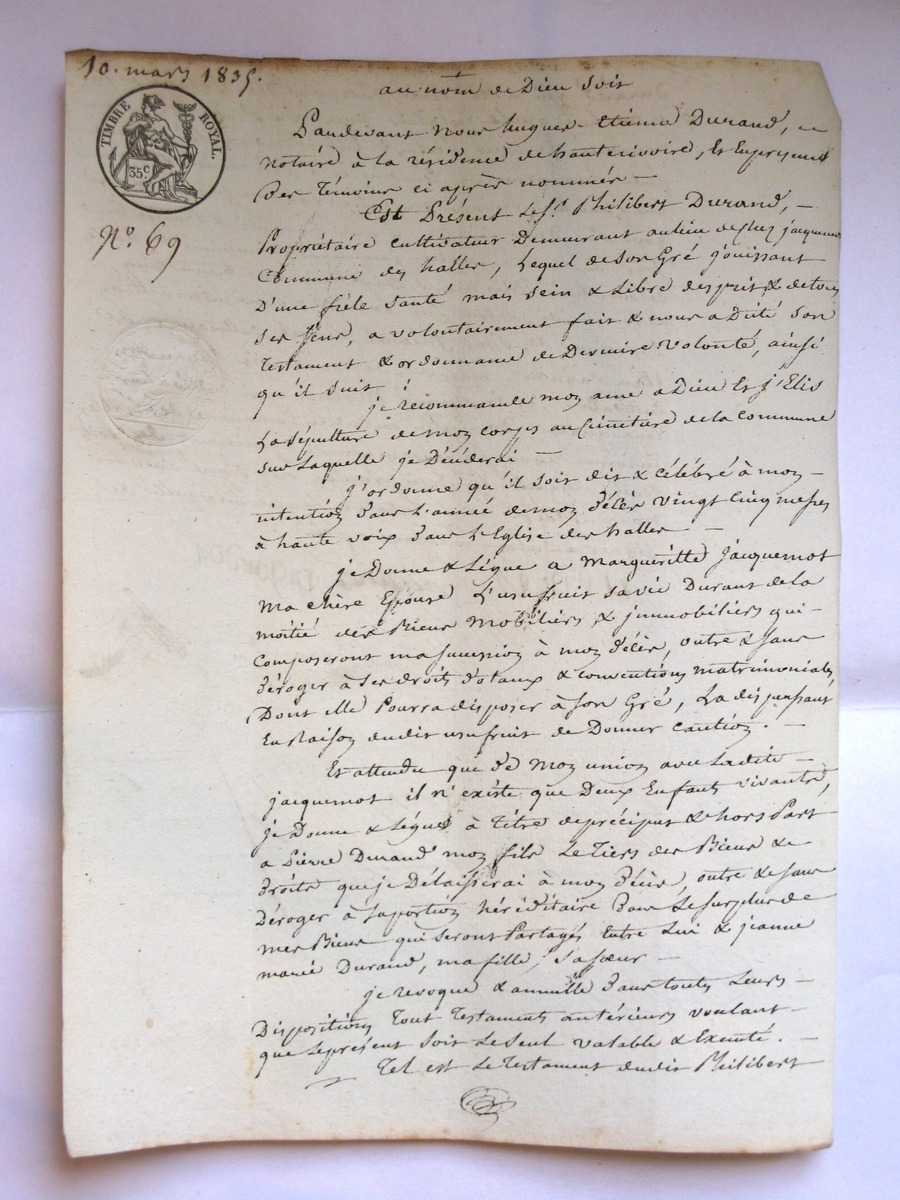 10. mars 1835.
au nom de Dieu soit
TIMBRE ROYAL.
35 c.
N.º 69
Pardevant Nous hugues - Etienne Durand,
notaire à la résidence de hauterivoire, Et En presence
Des Témoins ci après nommés —
Est Présent Le S.r Philibert Durand, —
Propriétaire cultivateur Demeurant au lieu de chez jacquemot
Commune des halles, Lequel de Son Gré jouissant
D'une frèle Santé mais Sein & Libre desprit & de tous
Ses Sens, a volontairement fait & nous a Dicté Son
Testament & ordonnance de Derniere Volonté, ainsi
qu'il Suit :
je recommande mon ame a Dieu Et j'Elis
La Sépulture de mon corps au Cimétiére de la Commune
Sur Laquelle je Décéderai —
j'ordonne qu'il Soit dit & célébré à mon —
intention Dans L'année de mon Décès Vingt Cinq messes
à haute voix Dans L'Eglise des halles. —
je Donne & Légue a Margueritte jacquemot
Ma chère Epouse L'usufruit Sa vie Durant de la
moitié des Biens Mobiliers & jmmobiliers qui —
Composeront ma Succession à mon Décès, outre & Sans
Déroger à Ses droits Dotaux & conventions matrimoniales,
Dont elle Pourra disposer à Son Gré, La dispensant
En Raison dudit usufruit de Donner caution. —
Et attendu que De mon union avec Ladite —
jacquemot il n'existe que Deux Enfants vivants,
je Donne & Légue à Titre de préciput & hors Part
a Pierre Durand mon fils Le Tiers des Biens &
Droits que je Délaisserai à mon Décès, outre & Sans
Déroger à Sa portion héréditaire Dans Le Surplus de
mes Biens qui Seront Partagés Entre Lui & jeanne
marie Durand, ma fille, Sa Sœur —
je revoque & annulle Dans toutes Leurs —
Dispositions Tout Testaments antérieurs voulant —
que Le présent Soit Le Seul valable & Exécuté. —
Tel est Le Testament dudit Philibert